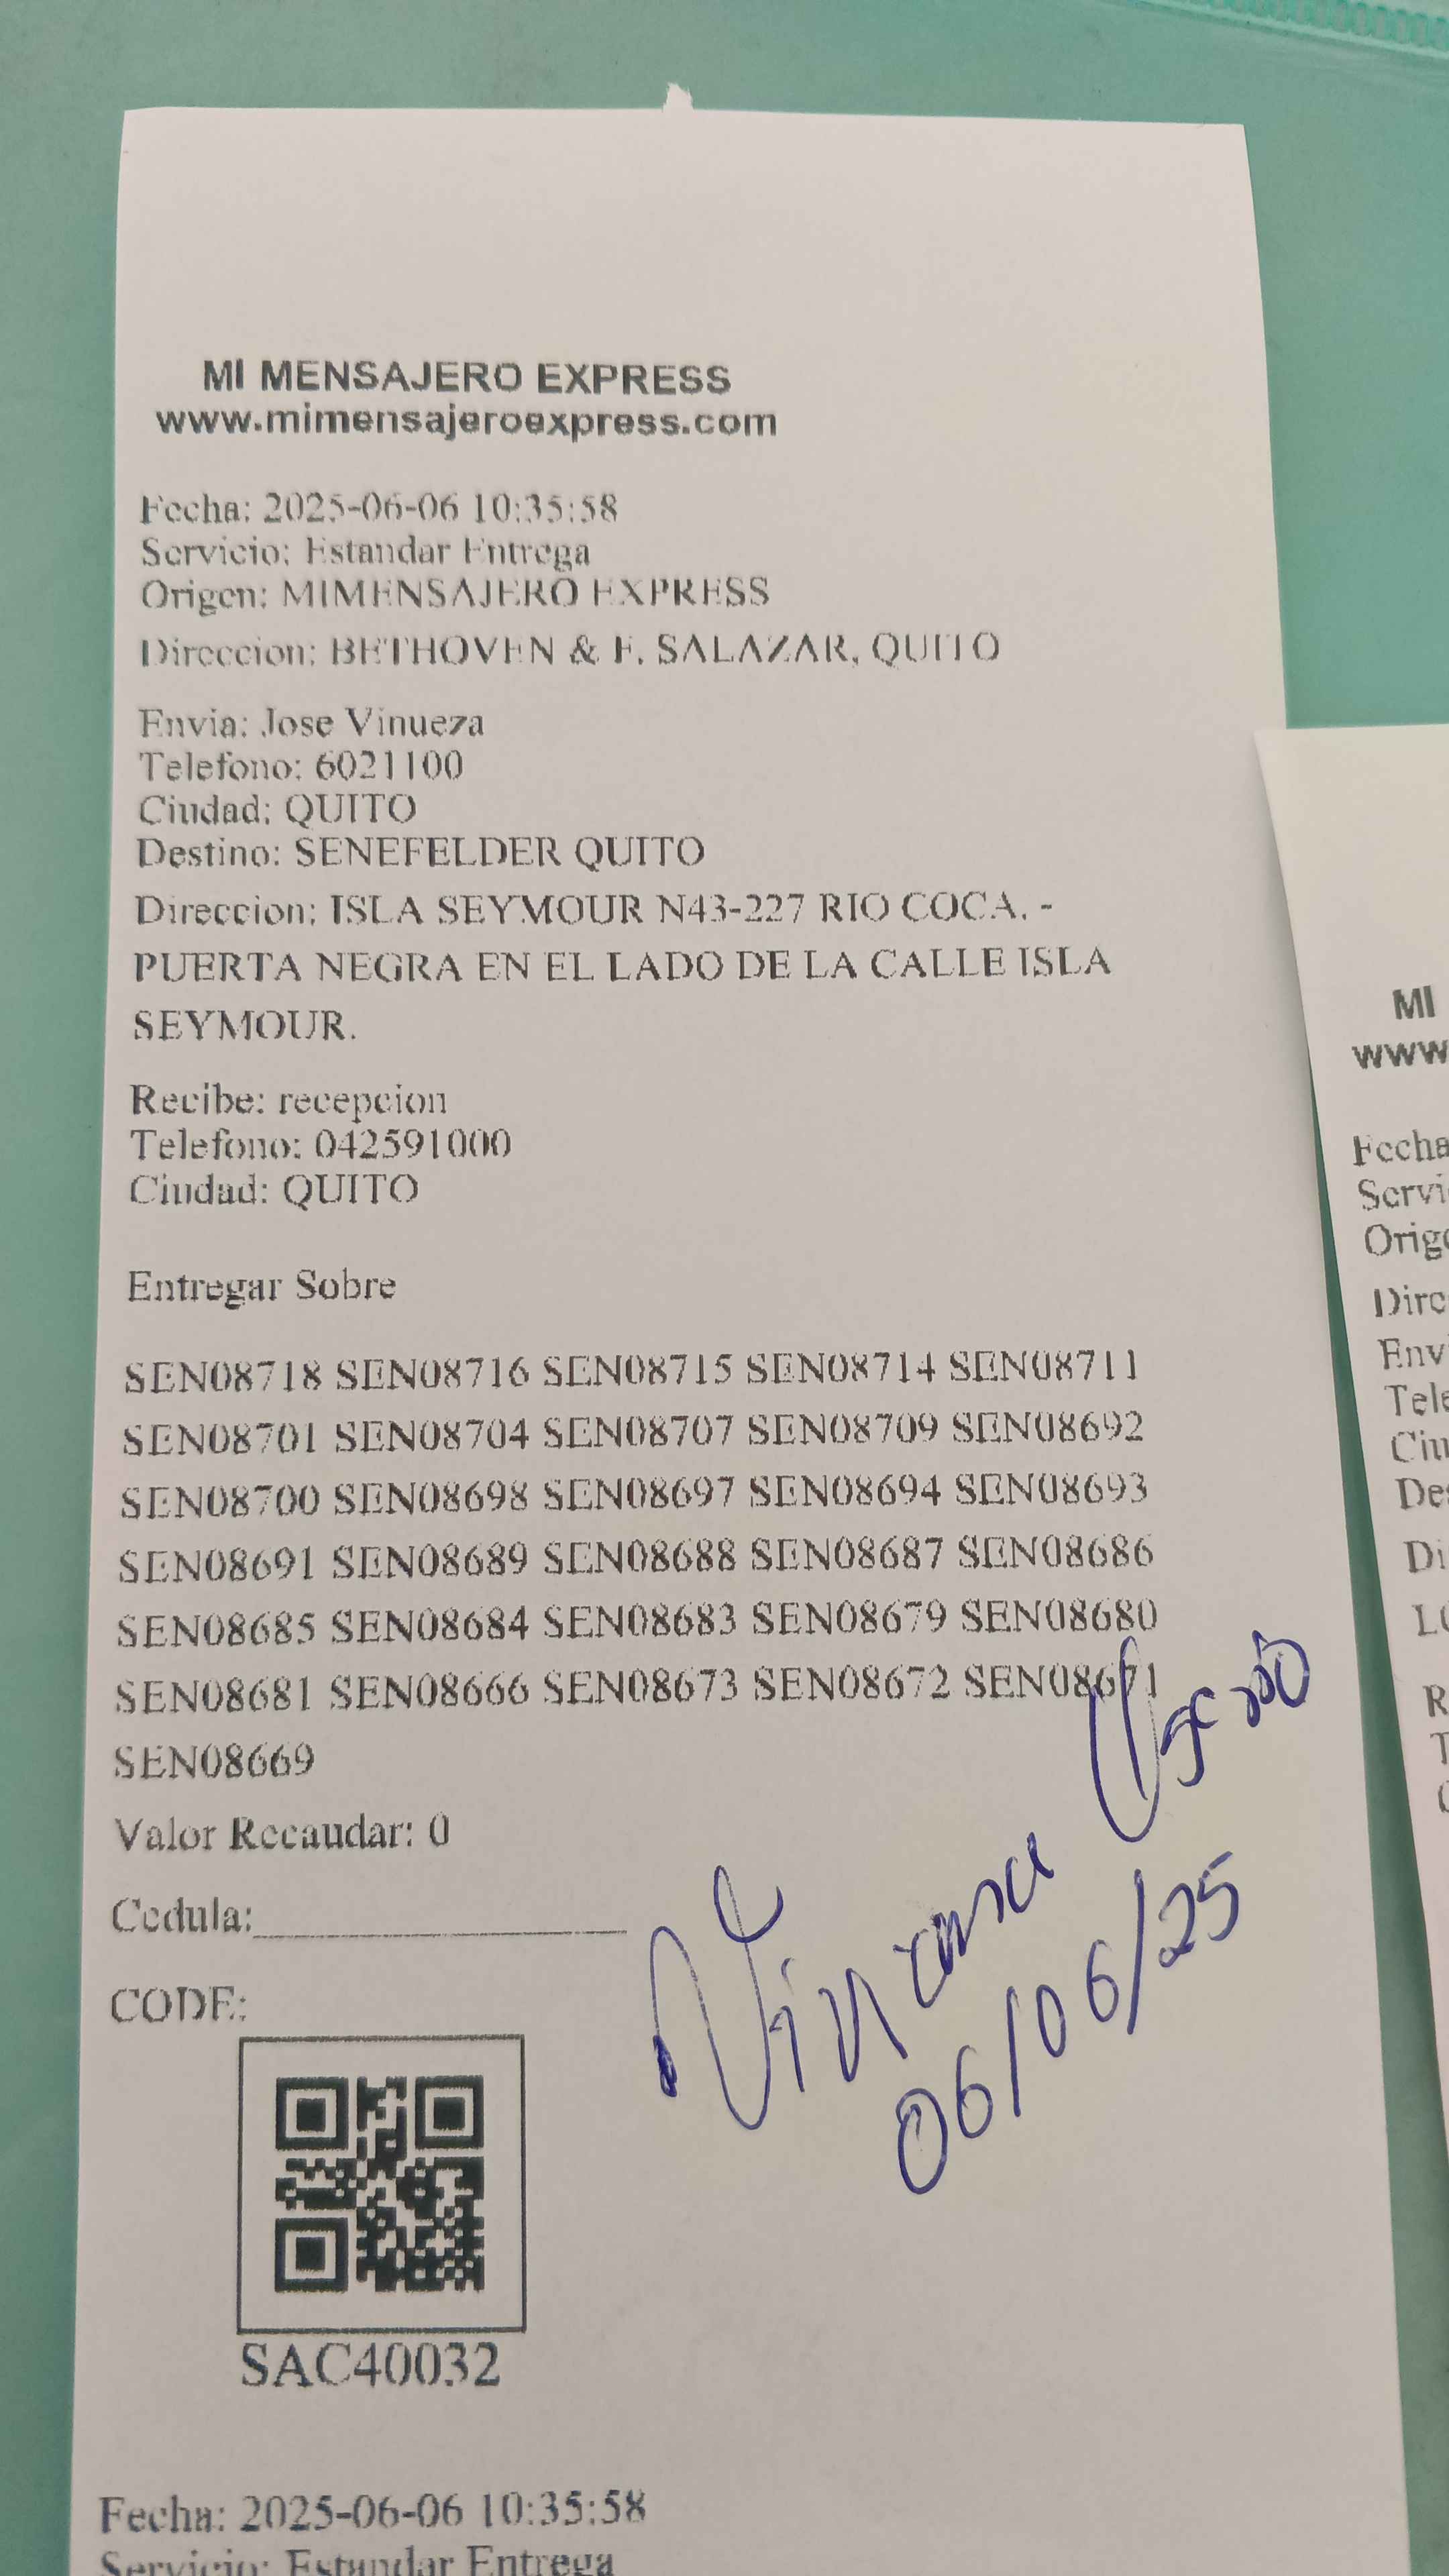 MI MENSAJERO EXPRESS
www.mimensajeroexpress.com
Fecha: 2025-06-06 10:35:58
Servicio: Estandar Entrega
Origen: MIMENSAJERO EXPRESS
Direccion: BETHOVEN & F. SALAZAR, QUITO
Envia: Jose Vinueza
Telefono: 6021100
Ciudad: QUITO
Destino: SENEFELDER QUITO
Direccion: ISLA SEYMOUR N43-227 RIO COCA. -
PUERTA NEGRA EN EL LADO DE LA CALLE ISLA
SEYMOUR.
Recibe: recepcion
Telefono: 042591000
Ciudad: QUITO
Entregar Sobre
SEN08718 SEN08716 SEN08715 SEN08714 SEN08711
SEN08701 SEN08704 SEN08707 SEN08709 SEN08692
SEN08700 SEN08698 SEN08697 SEN08694 SEN08693
SEN08691 SEN08689 SEN08688 SEN08687 SEN08686
SEN08685 SEN08684 SEN08683 SEN08679 SEN08680
SEN08681 SEN08666 SEN08673 SEN08672 SEN08671
SEN08669
Valor Recaudar: 0
Cedula:
06/06/25
CODE:
SAC40032
Fecha: 2025-06-06 10:35:58
Servicio: Estandar Entrega
MI
www
Fecha
Servi
Orig
Direc
Env
Tele
Ciu
Des
Di
LO
R
T